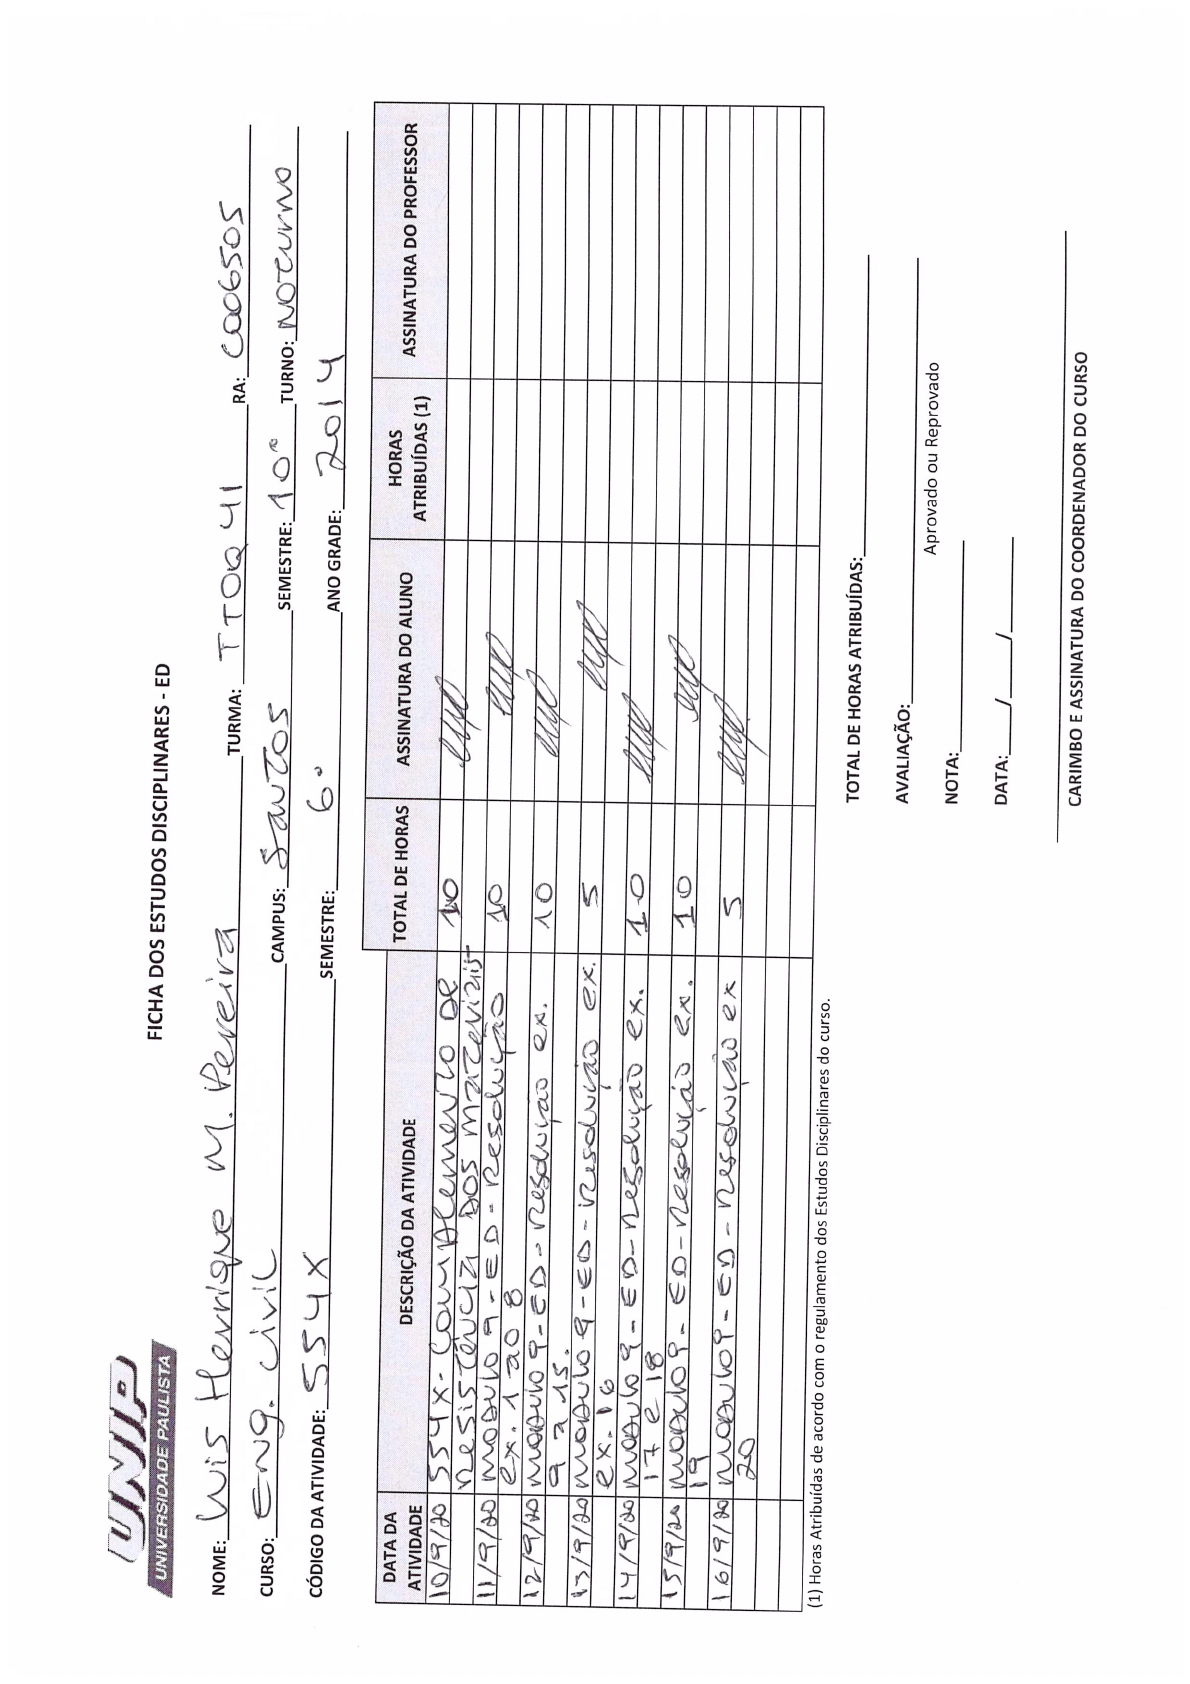 UNIP
UNIVERSIDADE PAULISTA
FICHA DOS ESTUDOS DISCIPLINARES - ED
NOME: Luis Henrique M. Pereira TURMA: TT0Q41 RA: C006505
CURSO: Eng. Civil CAMPUS: Santos SEMESTRE: 10º TURNO: Noturno
CÓDIGO DA ATIVIDADE: 554X SEMESTRE: 6º ANO GRADE: 2014
DATA DA ATIVIDADE DESCRIÇÃO DA ATIVIDADE TOTAL DE HORAS ASSINATURA DO ALUNO HORAS ATRIBUÍDAS (1) ASSINATURA DO PROFESSOR
10/9/20 554X - Complemento de 10
Resistência dos Materiais
11/9/20 Modulo 9 - ED - Resolução 10
ex. 1 ao 8
12/9/20 Modulo 9 - ED - Resolução ex. 10
9 a 15.
13/9/20 Modulo 9 - ED - Resolução ex. 5
ex. 16
14/9/20 Modulo 9 - ED - Resolução ex. 10
17 e 18
15/9/20 Modulo 9 - ED - Resolução ex. 10
19
16/9/20 Modulo 9 - ED - Resolução ex 5
20
(1) Horas Atribuídas de acordo com o regulamento dos Estudos Disciplinares do curso.
TOTAL DE HORAS ATRIBUÍDAS:
AVALIAÇÃO:
Aprovado ou Reprovado
NOTA:
DATA: / /
CARIMBO E ASSINATURA DO COORDENADOR DO CURSO